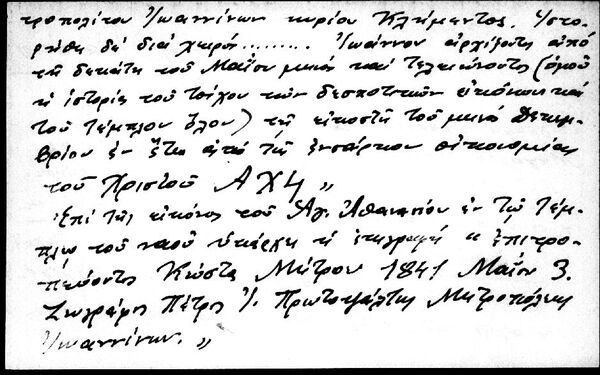 τροπολίτου Ἰωαννίνων κυρίου Κλήμεντος. Ἱστο-
ρήθη δὲ διὰ χειρός......... Ἰωάννου ἀρχίζοντος ἀπό
τῇ δεκάτῃ τοῦ Μαΐου μηνός καὶ τελειώνοντος (ὁμοῦ
ἡ ἱστορία τοῦ τοίχου τῶν δεσποτικῶν εἰκόνων καὶ
τοῦ τέμπλου ὅλου) τῇ εἰκοστῇ τοῦ μηνό Δεκεμ-
βρίου ἐν ἔτει ἀπό τῆς ἐνσάρκου οἰκονομίας
τοῦ Χριστοῦ ΑΧϞ „
Ἐπί τῆς εἰκόνος τοῦ Ἁγ. Ἀθανασίου ἐν τῷ τέμ-
πλῳ τοῦ ναοῦ ὑπάρχει ἡ ἐπιγραφή « ἐπιτρο-
πεύοντος Κώστα Μήτρου 1841 Μαΐου 3.
Ζωγράφος Πέτρος Ἰ. Πρωτοψάλτης Μητροπόλεως
Ἰωαννίνων. „